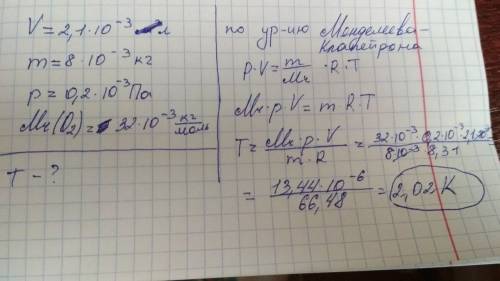 V = 2,1·10⁻³ л
m = 8·10⁻³ кг
p = 0,2·10⁻³ Па
Mr(O₂) = 32·10⁻³ кг/моль
T - ?
по ур-ию Менделеева-
Клапейрона
P·V = m/Mr ·R·T
Mr·p·V = m·R·T
T = Mr·p·V / m·R = 32·10⁻³·0,2·10⁻³·2,1·10⁻³ / 8·10⁻³·8,31
= 13,44·10⁻⁶ / 66,48 = 2,02 K